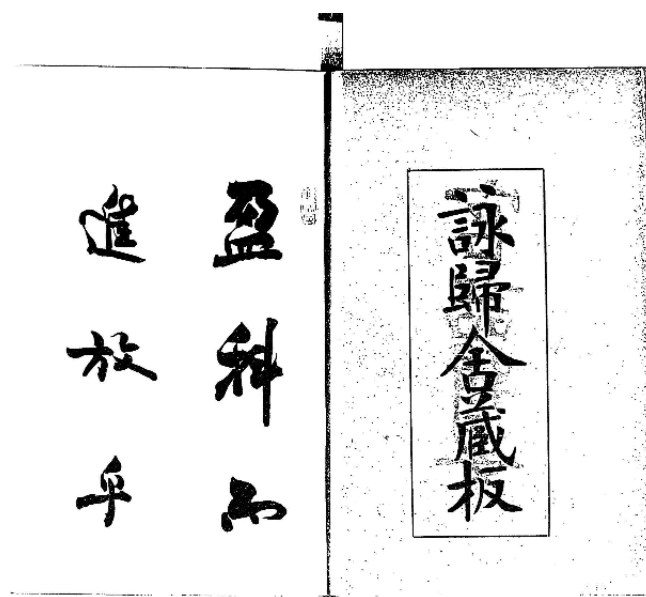 詠歸舍蔵板
盈科而
進放乎